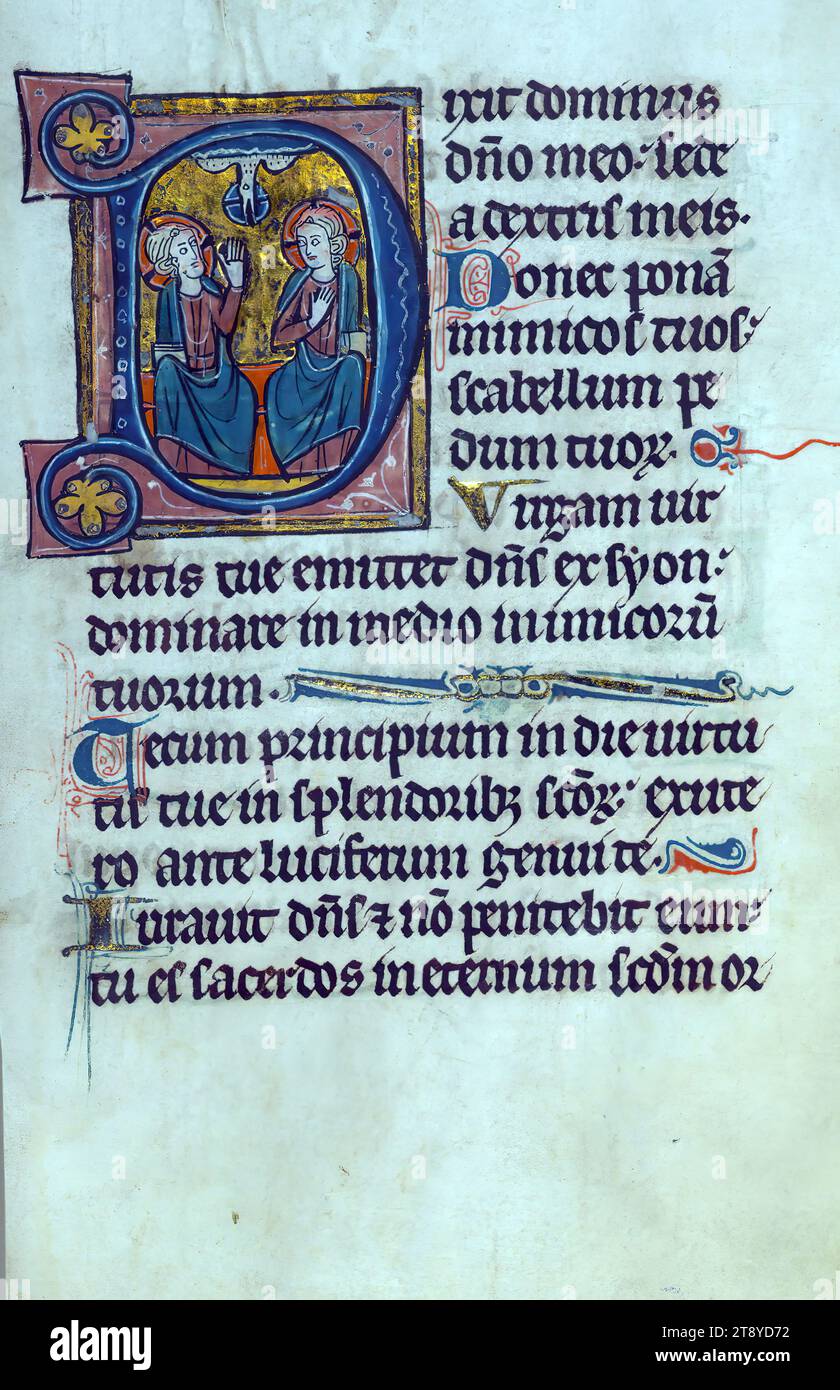 Dixit dominus
dño meo: sede
a dextris meis.
Donec ponā
inimicos tuos:
scabellum pe
dum tuoꝝ.
Virgam uir
tutis tue emittet dñs ex syon:
dominare in medio inimicorū
tuorum.
Tecum principium in die uirtu
tis tue in splendoribꝫ sc̄oꝝ: ex ute
ro ante luciferum genui te.
Iurauit dñs ⁊ nō penitebit eum:
tu es sacerdos in eternum scd̄m or
alamy
Image ID: 2T8YD72
www.alamy.com